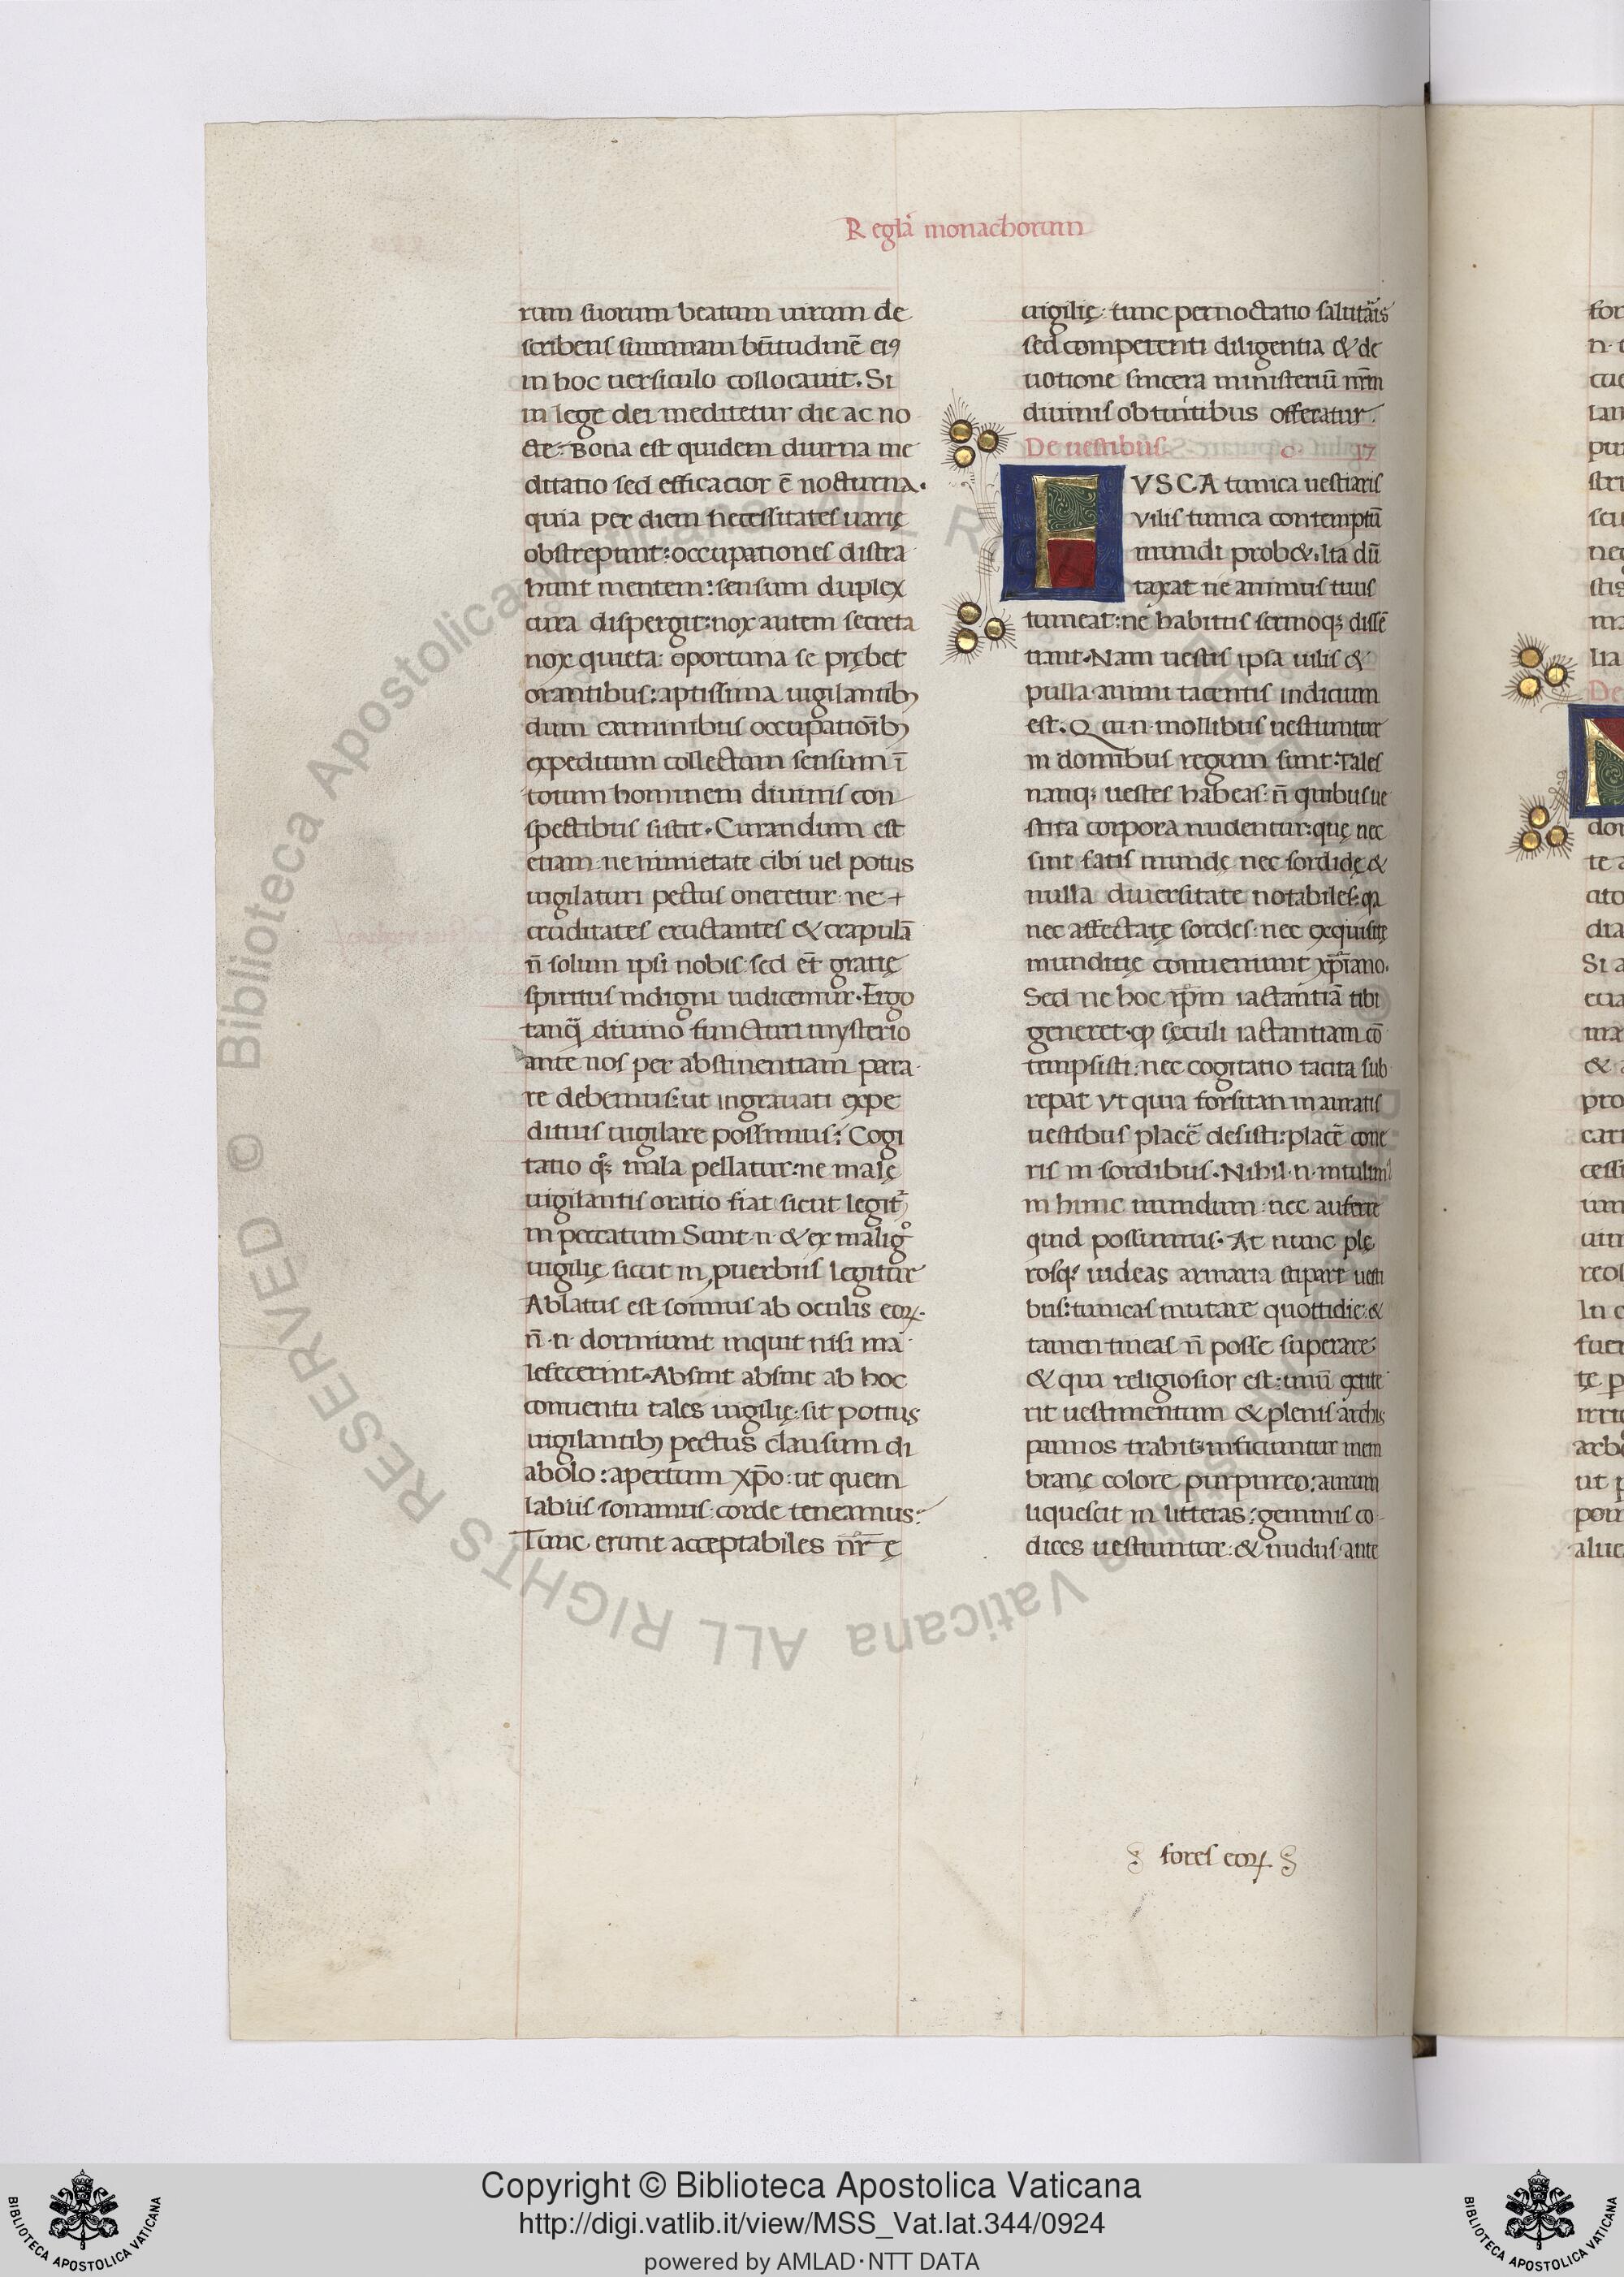 Regla monachorum
rum suorum beatum uirum de
scribens summam btitudinē ei9
in hoc uersiculo collocauit. Si
in lege dei meditetur die ac no
cte: Bona est quidem diurna me
ditatio sed efficacior ē nocturna.
quia per diem necessitates uarię
obstrepunt: occupationes distra
hunt mentem: sensum duplex
cura dispergit: nox autem secreta
nox quieta: oportuna se prębet
orantibus: aptissima uigilantibꝫ
dum carminibus occupatioībꝫ
expeditum collectam sensum ī
totum hominem diuinis con
spectibus sistit. Curandum est
etiam ne nimietate cibi uel potus
uigilaturi pectus oneretur: ne +
cruditates eructantes & crapulā
n̄ solum ipsi nobis sed et̄ gratię
spiritus indigni iudicemur. Ergo
tanq̈ diuino functuri mysterio
ante nos per abstinentiam para
re debemus: ut ingrauati expe
ditius uigilare possimus: Cogi
tatio qꝫ mala pellatur: ne malę
uigilantis oratio fiat sicut legit᷑
in peccatum Sunt .n. & ex malig°
uigilię sicut in ꝓuerbiis legitur
Ablatus est somnus ab oculis eoꝝ.
n̄ .n. dormiunt inquit nisi ma
lefecerint. Absint absint ab hoc
conuentu tales uigilię: sit potius
uigilantibꝫ pectus clausum di
abolo: apertum xp̄o: ut quem
labiis sonamus corde teneamus:
Tunc erunt acceptabiles nr̄ę
uigilię: tunc pernoctatio salutāis
sed competenti diligentia & de
uotione sincera ministeriū nrm̄
diuinis obtutibus offeratur.
De uestibus. c. 17
FVSCA tunica uestiaris
vilis tunica contemptū
mundi prob&. Ita dū
taxat ne animus tuus
tumeat: ne habitus sermoqꝫ dissē
tiant. Nam uestis ipsa uilis &
pulla animi tacentis indicium
est. Qui .n. mollibus uestiuntur
in domibus regum sunt: Tales
nanqꝫ uestes habeas: n̄ quibus ue
stita corpora nudentur: quę nec
sint satis mundę nec sordidę &
nulla diuersitate notabiles: qa
nec affectatę sordes: nec exquisitę
munditię conueniunt xp̄iano.
Sed ne hoc ip̄m iactantiā tibi
generet. qꝫ seculi iactantiam cō
tempsisti: nec cogitatio tacita sub
repat Vt quia forsitan in auratis
uestibus placē desisti: placē cone
ris in sordibus. Nihil .n. intulim9
in hunc mundum: nec auferre
quid possumus. At nunc plę
rosqꝫ uideas armaria stipare uesti
bus: tunicas mutare quottidie: &
tamen tineas n̄ posse superare
& qui religiosior est: unū extite
rit uestimentum & plenis archis
pannos trahit: inficiuntur mem
branę colore purpureo: aurum
liquescit in litteras: gemmis co
dices uestiuntur: & nudus ante
fores eoꝝ
Copyright © Biblioteca Apostolica Vaticana
http://digi.vatlib.it/view/MSS_Vat.lat.344/0924
powered by AMLAD·NTT DATA
BIBLIOTECA APOSTOLICA VATICANA
BIBLIOTECA APOSTOLICA VATICANA